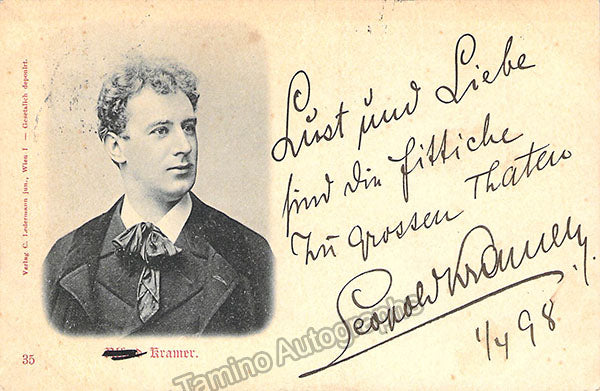 Lust und Liebe
sind die Fittiche
zu grossen Thaten
Leopold Kramer
1/4 98
Verlag C. Ledermann jun., Wien I — Gesetzlich deponirt.
35
Kramer.
Tamino Autographs